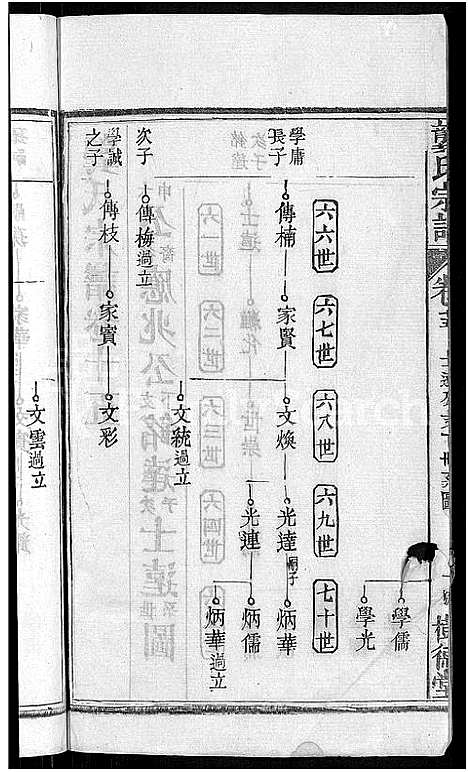 龔氏宗譜
卷十五
樹德堂
學儒
學光
六六世
六七世
六八世
六九世
七十世
學庸長子
傳楠
家賢
文煥
光達 嗣子
炳華
光連
炳儒
炳華過立
次子
傳梅過立
文統過立
學誠之子
傳枝
家賓
文彩
文雲過立